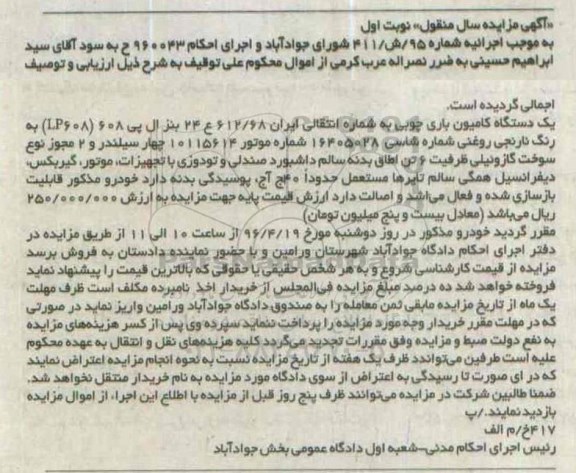 «آگهی مزایده سال منقول» نوبت اول
به موجب اجرائیه شماره ۹۵/ش/۴۱۱ شورای جوادآباد و اجرای احکام ۹۶۰۰۴۳ ح به سود آقای سید
ابراهیم حسینی به ضرر نصراله عرب کرمی از اموال محکوم علی توقیف به شرح ذیل ارزیابی و توصیف
اجمالی گردیده است.
یک دستگاه کامیون باری چوبی به شماره انتقالی ایران ۶۱۲/۶۸ ع ۲۴ بنز ال پی ۶۰۸ (LP۶۰۸) به
رنگ نارنجی روغنی شماره شاسی ۱۶۴۰۵۰۲۸ شماره موتور ۱۰۱۱۵۶۱۴ چهار سیلندر و ۲ مجوز نوع
سوخت گازوئیلی ظرفیت ۶ تن اطاق بدنه سالم داشبورد صندلی و تودوزی با تجهیزات، موتور، گیربکس،
دیفرانسیل همگی سالم تایرها مستعمل حدوداً ۴۰ج آج، پوسیدگی بدنه دارد خودرو مذکور قابلیت
بازسازی شده و فعال می‌باشد و اصالت دارد ارزش قیمت پایه جهت مزایده به ارزش ۲۵۰/۰۰۰/۰۰۰
ریال می‌باشد (معادل بیست و پنج میلیون تومان)
مقرر گردید خودرو مذکور در روز دوشنبه مورخ ۹۶/۴/۱۹ از ساعت ۱۰ الی ۱۱ از طریق مزایده در
دفتر اجرای احکام دادگاه جوادآباد شهرستان ورامین و با حضور نماینده دادستان به فروش برسد
مزایده از قیمت کارشناسی شروع و به هر شخص حقیقی یا حقوقی که بالاترین قیمت را پیشنهاد نماید
فروخته خواهد شد ده درصد مبلغ مزایده فی‌المجلس از خریدار اخذ نامبرده مکلف است ظرف مهلت
یک ماه از تاریخ مزایده مابقی ثمن معامله را به صندوق دادگاه جوادآباد ورامین واریز نماید در صورتی
که در مهلت مقرر خریدار وجه مورد مزایده را پرداخت ننماید سپرده وی پس از کسر هزینه‌های مزایده
به نفع دولت ضبط و مزایده وفق مقررات تجدید می‌گردد کلیه هزینه‌های نقل و انتقال به عهده محکوم
علیه است طرفین می‌توانند ظرف یک هفته از تاریخ مزایده نسبت به نحوه انجام مزایده اعتراض نمایند
که در ای صورت تا رسیدگی به اعتراض از سوی دادگاه مورد مزایده به نام خریدار منتقل نخواهد شد.
ضمنا طالبین شرکت در مزایده می‌توانند ظرف پنج روز قبل از مزایده با اطلاع این اجراء از اموال مزایده
بازدید نمایند./پ
۴۱۷خ/م الف
رئیس اجرای احکام مدنی-شعبه اول دادگاه عمومی بخش جوادآباد